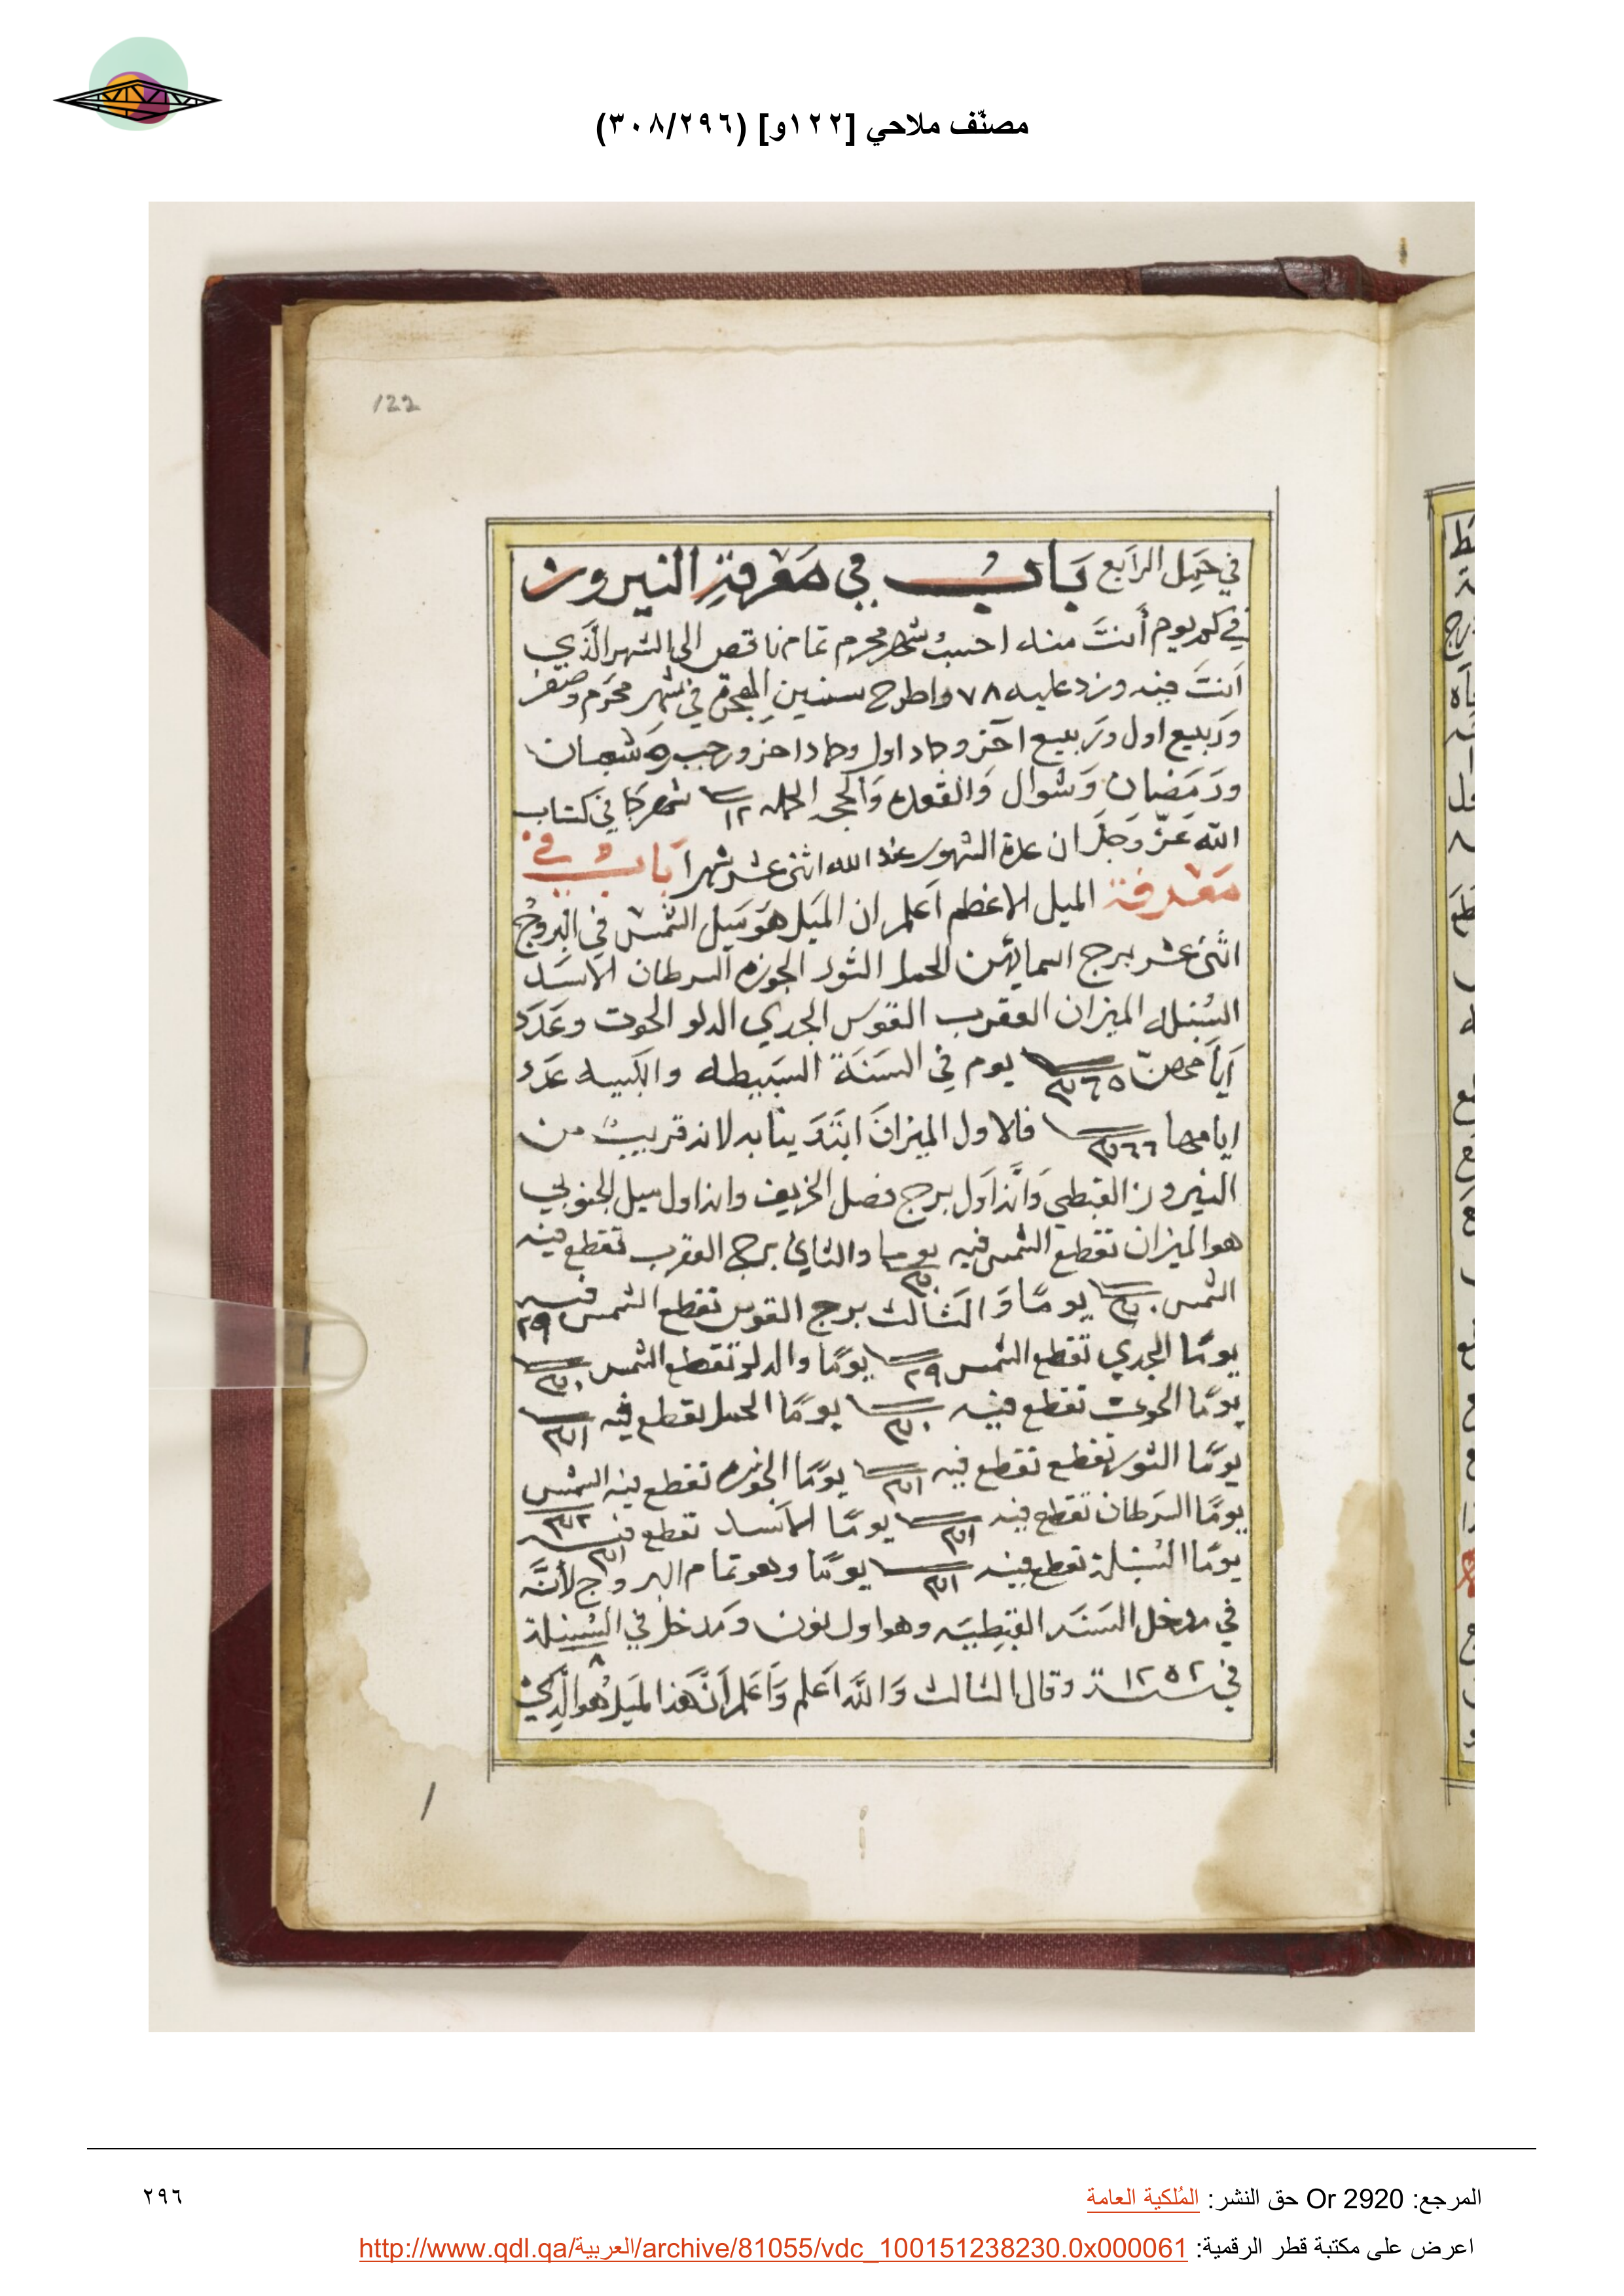 مصنّف ملاحي [١٢٢و] (٣٠٨/٢٩٦)
122
في حمل الرابع بَابُ في مَعْرفةِ النيروز
في كم يوم أنتَ منه احسبْ شهر محرم تمام ناقص الى الشهر الَّذي
اَنتَ فيه وزد عليه ٧٨ واطرح سنين الهجرة في شهر محرم وصفر
وربيع اول وربيع آخر وجماد اول وجماد اخر ورجب وشعبان
ورَمَضان وَشوال وَالقعده وَالحجه الجمله ١٢ شهر كما في كتاب
الله عَزّ وَجلَّ ان عدة الشهور عند الله اثنى عشر شهرا بَابُ في
مَعْرفة الميل الاعظم اَعلم ان الميَل هوَ مَيل الشمس في البروجُ
اثنى عشر برج اسمائهن الحمل الثور الجوزه السرطان الاسَد
السُنبله الميزان العقرب القوس الجدي الدلو الحوت وعَدَد
اَيامهنّ ٣٦٥ يوم في السَنَة البسيطه والكبيسه عَدَد
ايامها ٣٦٦ فالاول الميزان ابتَدَينا به لانه قريبْ من
النيروز القبطي وَانه اَول برج فصل الخريف وانه اول ميل الجنوبي
هو الميزان تقطع الشمس فيه ٣٠ يوما والثاني برج العقرب تقطع فيه
الشمس ٣٠ يومًا وَالثالث برج القوس تقطع الشمس فيه ٢٩
يومًا الجدي تقطع الشمس ٢٩ يومًا والدلو تقطع الشمس ٣٠
يومًا الحوت تقطع فيه ٣٠ يومًا الحمل تقطع فيه ٣١
يومًا الثور تقطع تقطع فيه ٣١ يومًا الجوزه تقطع فيه الشمس ٣٢
يومًا السَرطان تقطع فيه ٣١ يومًا الاَسد تقطع فيه ٣١
يومًا السُنبلة تقطع فيه ٣١ يومًا وهو تمام البروج لأنَّه
في مدخل السَنَه القبطِيَه وهو اول نون ومَدخل في السُنبلة
في سنة ١٢٥٢ وقال الثالث وَاللَّه اَعلم وَاَعلم اَنَّ هَذا الميَل هُو الَّذي
المرجع: Or 2920 حق النشر: المُلكية العامة
٢٩٦
اعرض على مكتبة قطر الرقمية: http://www.qdl.qa/العربية/archive/81055/vdc_100151238230.0x000061